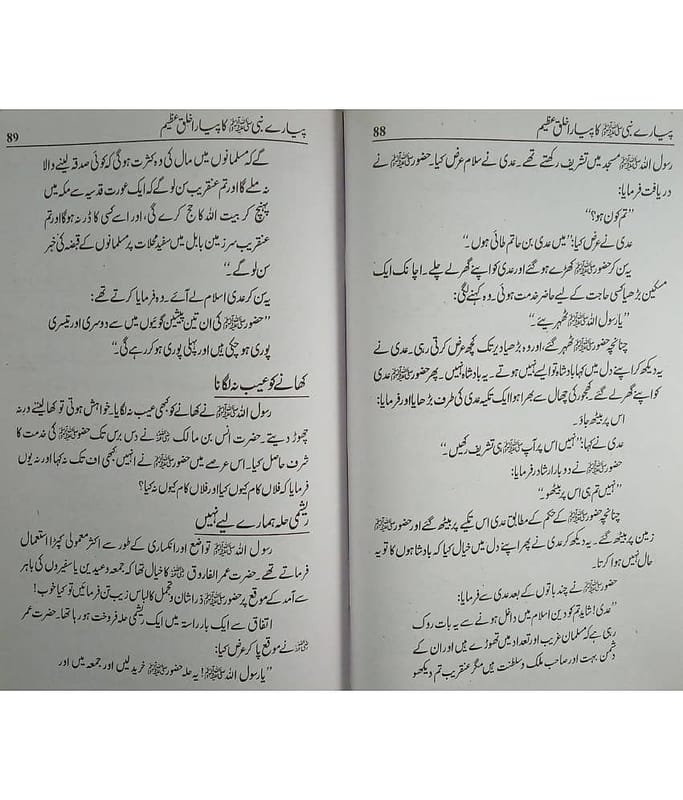 پیارے نبی ﷺ کا پیارا خلق عظیم 88
رسول اللہ ﷺ مسجد میں تشریف رکھتے تھے۔ عدی نے سلام عرض کیا۔ حضور ﷺ نے
دریافت فرمایا:
”تم کون ہو؟“
عدی نے عرض کیا: ”میں عدی بن حاتم طائی ہوں۔“
یہ سن کر حضور ﷺ کھڑے ہو گئے اور عدی کو اپنے گھر لے چلے۔ اچانک ایک
مسکین بڑھیا کسی حاجت کے لیے حاضر خدمت ہوئی۔ وہ کہنے لگی:
”یا رسول اللہ ﷺ ٹھہریئے۔“
چنانچہ حضور ﷺ ٹھہر گئے اور وہ بڑھیا دیر تک کچھ عرض کرتی رہی۔ عدی نے
یہ دیکھ کر اپنے دل میں کہا بادشاہ تو ایسے نہیں ہوتے۔ یہ بادشاہ نہیں۔ پھر حضور ﷺ عدی
کو اپنے گھر لے گئے۔ کھجور کی چھال سے بھرا ہوا ایک تکیہ عدی کی طرف بڑھایا اور فرمایا:
اس پر بیٹھ جاؤ۔
عدی نے کہا: ”نہیں اس پر آپ ﷺ ہی تشریف رکھیں۔“
حضور ﷺ نے دوبارہ ارشاد فرمایا:
”نہیں تم ہی اس پر بیٹھو۔“
چنانچہ حضور ﷺ کے حکم کے مطابق عدی اس تکیے پر بیٹھ گئے اور حضور ﷺ
زمین پر بیٹھ گئے۔ یہ دیکھ کر عدی نے پھر اپنے دل میں خیال کیا کہ بادشاہوں کا تو یہ
حال نہیں ہوا کرتا۔
حضور ﷺ نے چند باتوں کے بعد عدی سے فرمایا:
”عدی! شاید تم کو دین اسلام میں داخل ہونے سے یہ بات روک
رہی ہے کہ مسلمان غریب اور تعداد میں تھوڑے ہیں اور ان کے
دشمن بہت اور صاحب ملک و سلطنت ہیں مگر عنقریب تم دیکھو
پیارے نبی ﷺ کا پیارا خلق عظیم 89
گے کہ مسلمانوں میں مال کی وہ کثرت ہوگی کہ کوئی صدقہ لینے والا
نہ ملے گا اور تم عنقریب سن لو گے کہ ایک عورت قدسیہ سے مکہ میں
پہنچ کر بیت اللہ کا حج کرے گی، اور اسے کسی کا ڈر نہ ہوگا اور تم
عنقریب سرزمین بابل میں سفید محلات پر مسلمانوں کے قبضہ کی خبر
سن لو گے۔“
یہ سن کر عدی اسلام لے آئے۔ وہ فرمایا کرتے تھے:
”حضور ﷺ کی ان تین پیشین گوئیوں میں سے دوسری اور تیسری
پوری ہو چکی ہیں اور پہلی پوری ہو کر رہے گی۔“
کھانے کو عیب نہ لگانا
رسول اللہ ﷺ نے کھانے کو کبھی عیب نہ لگایا۔ خواہش ہوتی تو کھا لیتے ورنہ
چھوڑ دیتے۔ حضرت انس بن مالک ؓ نے دس برس تک حضور ﷺ کی خدمت کا
شرف حاصل کیا۔ اس عرصے میں حضور ﷺ نے انہیں کبھی اف تک نہ کہا اور نہ یوں
فرمایا کہ فلاں کام کیوں کیا اور فلاں کام کیوں نہ کیا؟
ریشمی حلہ ہمارے لیے نہیں
رسول اللہ ﷺ تواضع اور انکساری کے طور سے اکثر معمولی کپڑا استعمال
فرماتے تھے۔ حضرت عمر الفاروق ؓ کا خیال تھا کہ جمعہ و عیدین یا سفیروں کی باہر
سے آمد کے موقع پر حضور ﷺ ذرا شان و تجمل کا لباس زیب تن فرمائیں تو کیا خوب!
اتفاق سے ایک بار راستہ میں ایک ریشمی حلہ فروخت ہو رہا تھا۔ حضرت عمر
ؓ نے موقع پا کر عرض کیا:
”یا رسول اللہ ﷺ! یہ حلہ حضور ﷺ خرید لیں اور جمعہ میں اور